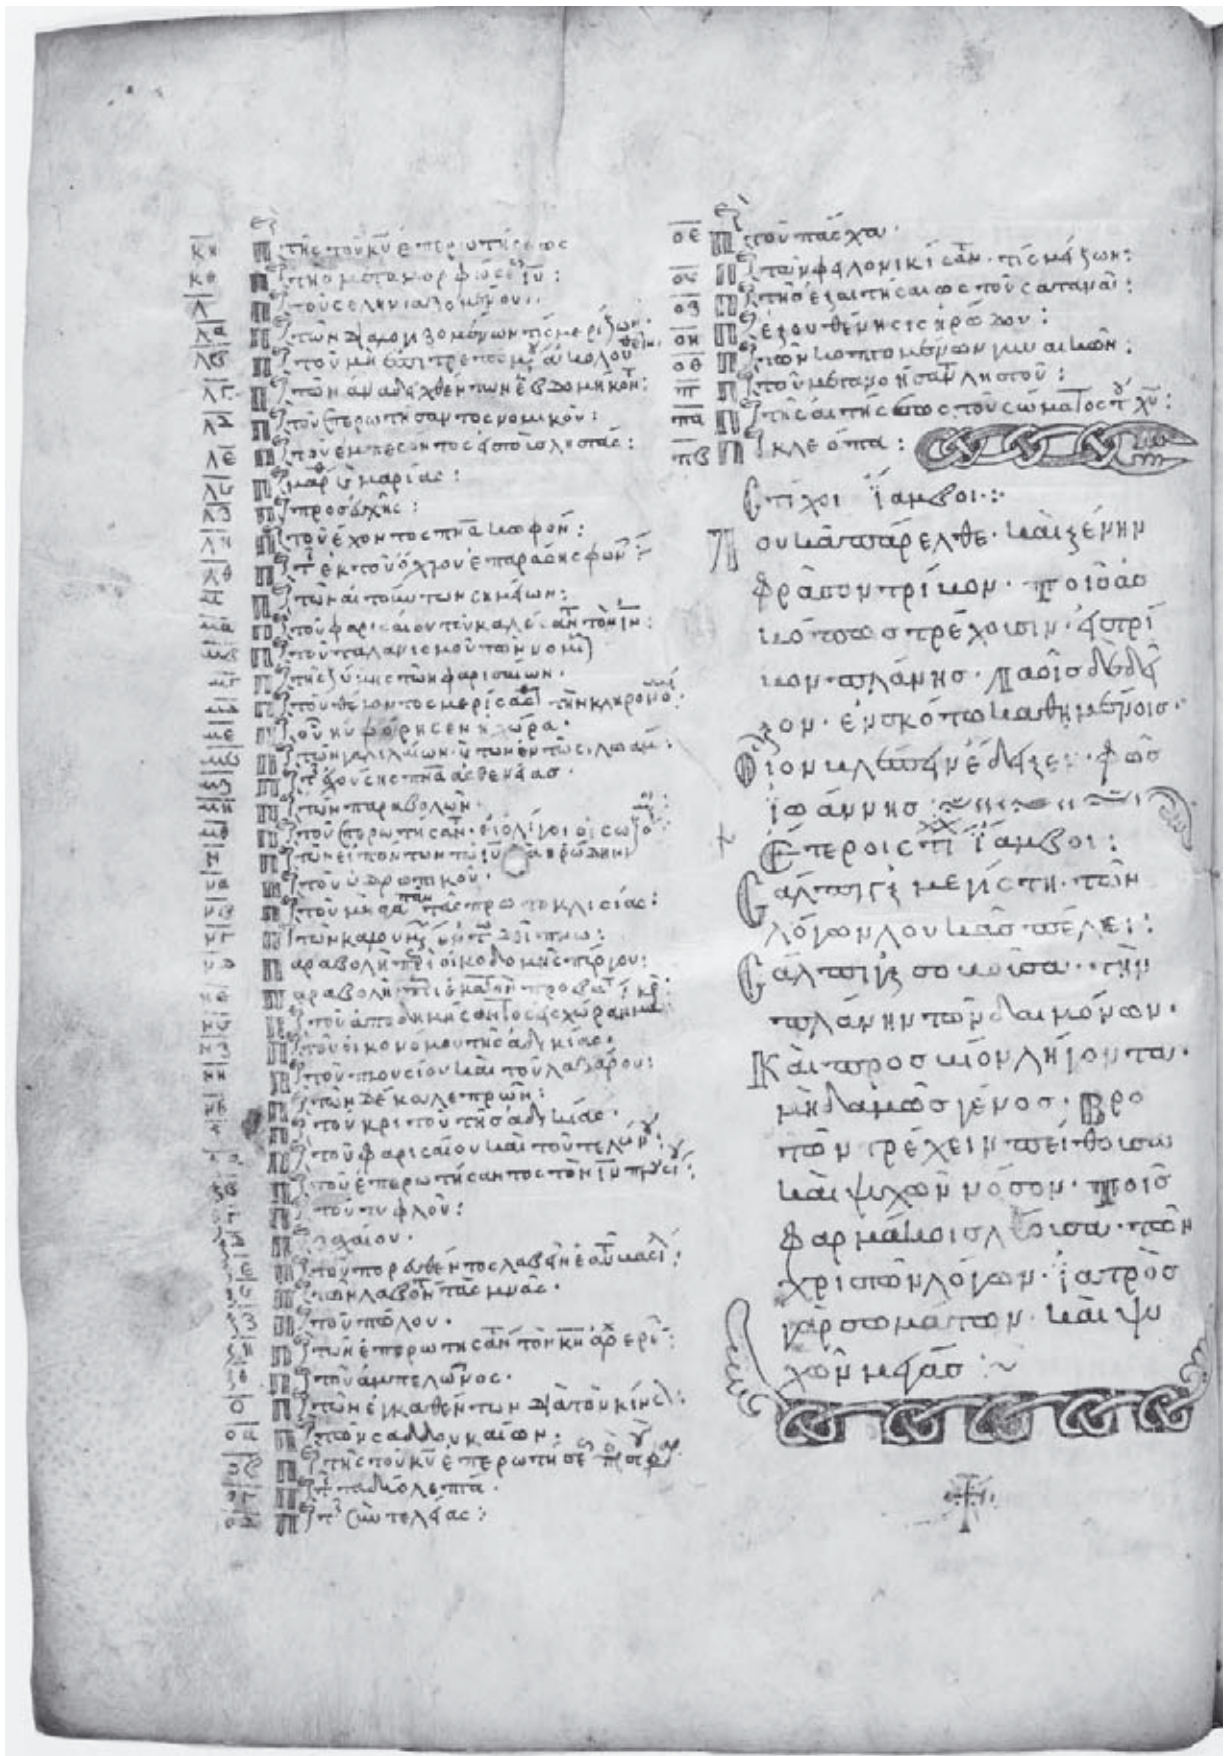 κη Περὶ τῆς τοῦ κυ ἐπερωτήσεως
κθ Περὶ τῆς μεταμορφώσε ιυ:
λ Περὶ τοῦ σεληνιαζομένου:
λα Περὶ τῶν διαλογιζομένων τίς μείζων·
λβ Περὶ τοῦ μὴ
λγ Περὶ τῶν ἀναδειχθέντων ἑβδομήκοντ:
λδ Περὶ τοῦ ἐπερωτήσαντος νομικοῦ:
λε Περὶ τοῦ ἐμπεσόντος εἰς τοὺς ληστάς:
λς Περὶ μάρθ ς μαρίας:
λζ Περὶ προσευχῆς:
λη Περὶ τοῦ ἔχοντος πνα κωφόν:
λθ Περὶ τ ἐκ τοῦ ὄχλου ἐπαράσης φων:
μ Περὶ τῶν αἰτούντων σημεῖον:
μα Περὶ τοῦ φαρισαίου τοῦ καλέσαντ τὸν ιν:
μβ Περὶ τοῦ ταλανισμοῦ τῶν νομικ
μγ Περὶ τῆς ζύμης τῶν φαρισαίων·
μδ Περὶ τοῦ θέλοντος μερίσασθ τὴν κληρονομ:
με Περὶ οὗ ηὐφόρησεν ἡ χώρα·
μς Περὶ τῶν γαλιλαίων· ς τῶν ἐν τῶ σιλωάμ:
μζ Περὶ τ ἐχούσης πνα ἀσθενείας·
μη Περὶ τῶν παραβολῶν·
μθ Περὶ τοῦ ἐπερωτήσαντ· εἰ ὀλίγοι οἱ σωζο
ν Περὶ τῶν εἰπόντων τῶ ιυ
να Περὶ τοῦ ὑδρωπικοῦ·
νβ Περὶ τοῦ μὴ ἀγαπᾶν τὰς πρωτοκλισίας:
νγ Περὶ τῶν καλουμέν ἐν τῶ δείπνω:
νδ Παραβολὴ περὶ οἰκοδομῆς πύργου:
νε Παραβολὴ
νς Περὶ τοῦ ἀποδημήσαντος εἰς χώραν μακρ
νζ Περὶ τοῦ οἰκονόμου τῆς ἀδικίας·
νη Περὶ τοῦ πλουσίου καὶ τοῦ λαζάρου:
νθ Περὶ τῶν δέκα λεπρῶν:
ξ Περὶ τοῦ κριτοῦ τῆς ἀδικίας·
ξα Περὶ τοῦ φαρισαίου καὶ τοῦ τελών:
ξβ Περὶ τοῦ ἐπερωτήσαντος τὸν ιν πλουσί:
ξγ Περὶ τοῦ τυφλοῦ:
ξδ Περὶ ζακχαίου·
ξε Περὶ τοῦ πορευθέντος λαβεῖν ἑαυτῶ βασιλ:
ξς Περὶ τῶν λαβόντ τὰς μνᾶς·
ξζ Περὶ τοῦ πώλου·
ξη Περὶ τῶν ἐπερωτησάντ τὸν κν ἀρχιερέ:
ξθ Περὶ τοῦ ἀμπελῶνος·
ο Περὶ τῶν ἐγκαθέτων διὰ τὸν κῆνσ:
οα Περὶ τῶν σαδδουκαίων·
οβ Περὶ τῆς τοῦ κυ ἐπερωτήσε πρ τ φαρ
ογ Περὶ τ τὰ δύο λεπτά·
οδ Περὶ τ συντελείας:
οε Περὶ τοῦ πάσχα·
ος Περὶ τῶν φιλονικησάντ· τίς μείζων:
οζ Περὶ τῆς ἐξαιτήσεως τοῦ σατανᾶ:
οη Περὶ ἐξουθενήσεως ἡρώδου:
οθ Περὶ τῶν κοπτομένων γυναικῶν:
π Περὶ τοῦ μετανοήσαντ ληστοῦ:
πα Περὶ τῆς αἰτήσεως τοῦ σώματος τοῦ χυ:
πβ Περὶ κλεόπα:
Στίχοι ἴαμβοι·:
Λουκᾶ πάρελθε· καὶ ξένην
φράσον τρίβον· τοῖς ἀσ
κόπως τρέχουσιν· ἐν τρί
βον πλάνης· λαοῖς δὲ δεῖ
ξον· ἐν σκότω καθημένοις·
Οἷον κλαπεῖν ἔδειξε· φῶς
ἰωάννης:
Ἕτεροι στί ἴαμβοι:
Σάλπιγξ μεγίστη· τῶν
λόγων λουκᾶς πέλει:
Σάλπιγξ σοβοῦσα· τὴν
πλάνην τῶν δαιμόνων·
Καὶ πρὸς βίον λήγοντα·
μηδαμῶς γένος· βρο
τῶν τρέχειν πείθουσα
καὶ ψυχῶν νόσον· τοῖς
φαρμάκοις λύουσα· τῶν
χριστοῦ λόγων· ἰατρὸς
γὰρ σωμάτων· καὶ ψυ
χῶν μέγας: